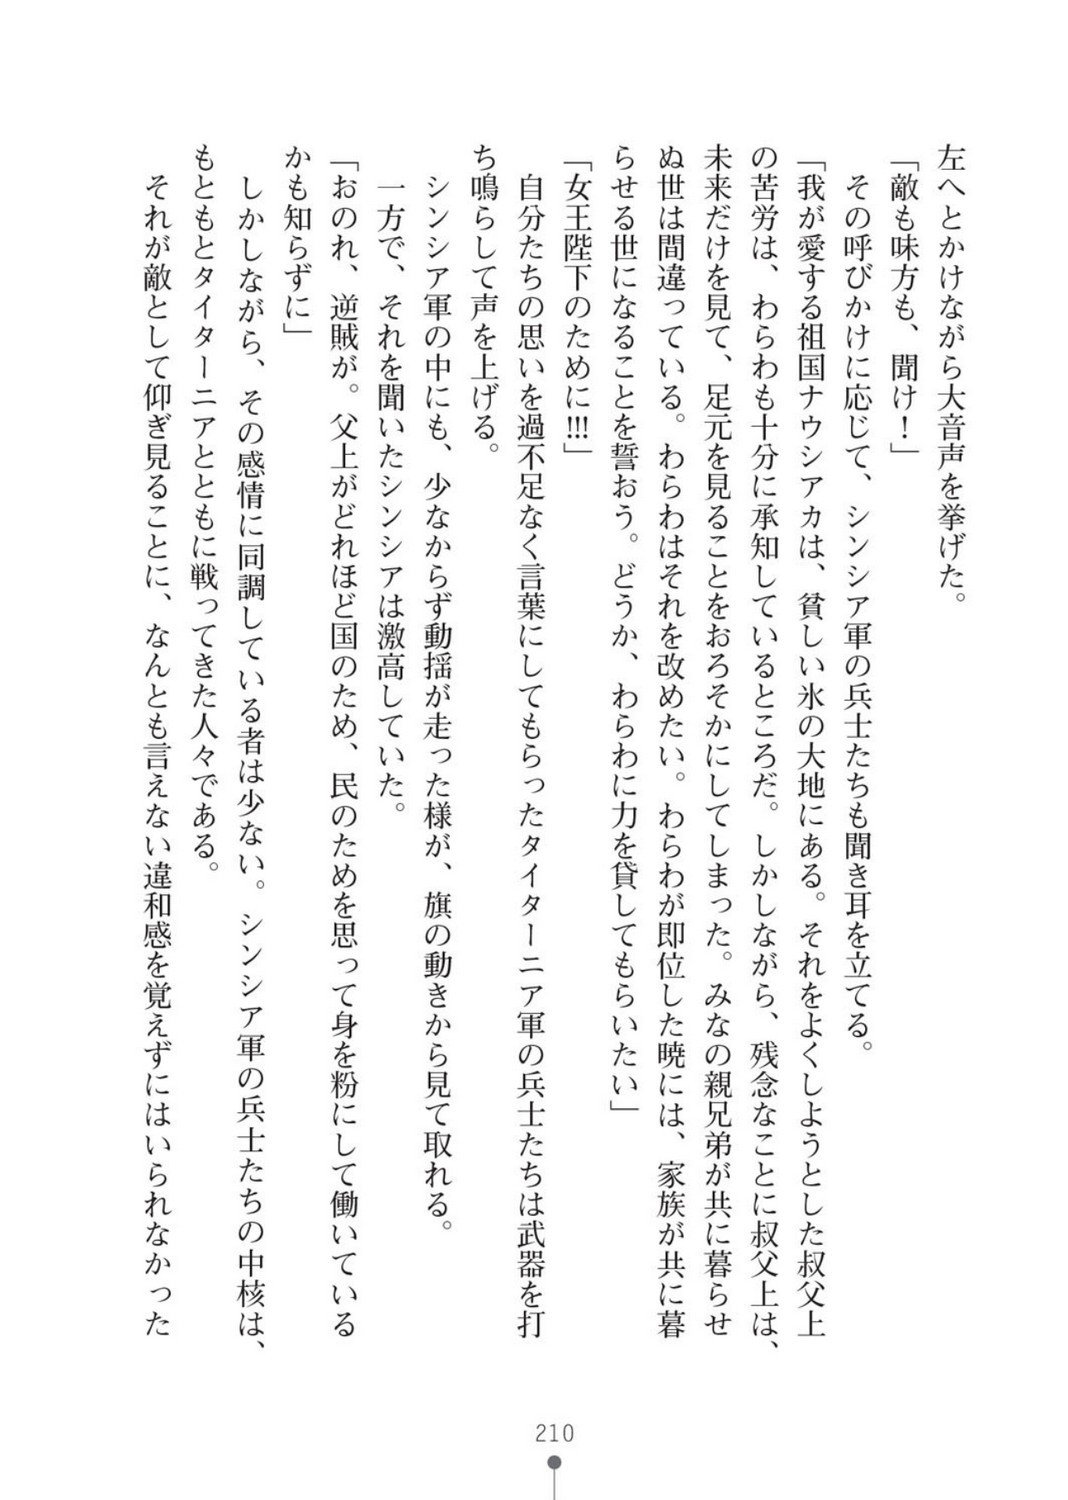 左へとかけながら大音声を挙げた。
「敵も味方も、聞け！」
その呼びかけに応じて、シンシア軍の兵士たちも聞き耳を立てる。
「我が愛する祖国ナウシアカは、貧しい氷の大地にある。それをよくしようとした叔父上
の苦労は、わらわも十分に承知しているところだ。しかしながら、残念なことに叔父上は、
未来だけを見て、足元を見ることをおろそかにしてしまった。みなの親兄弟が共に暮らせ
ぬ世は間違っている。わらわはそれを改めたい。わらわが即位した暁には、家族が共に暮
らせる世になることを誓おう。どうか、わらわに力を貸してもらいたい」
「女王陛下のために!!!」
自分たちの思いを過不足なく言葉にしてもらったタイターニア軍の兵士たちは武器を打
ち鳴らして声を上げる。
シンシア軍の中にも、少なからず動揺が走った様が、旗の動きから見て取れる。
一方で、それを聞いたシンシアは激高していた。
「おのれ、逆賊が。父上がどれほど国のため、民のためを思って身を粉にして働いている
かも知らずに」
しかしながら、その感情に同調している者は少ない。シンシア軍の兵士たちの中核は、
もともとタイターニアとともに戦ってきた人々である。
それが敵として仰ぎ見ることに、なんとも言えない違和感を覚えずにはいられなかった
210